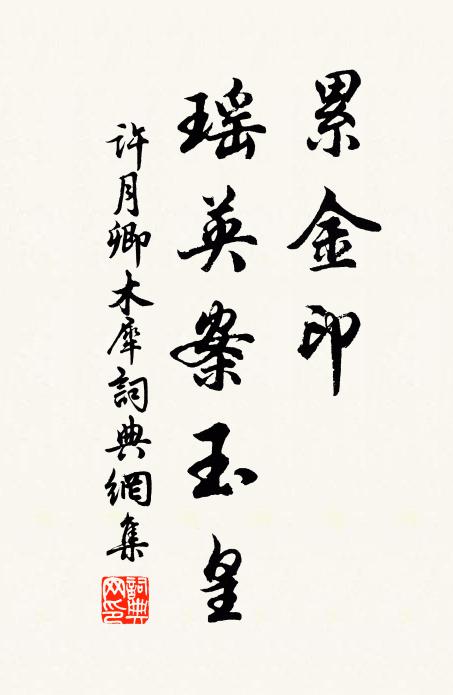 累金印
瑶英案玉皇
許月卿木犀詞典網集
詞典网印